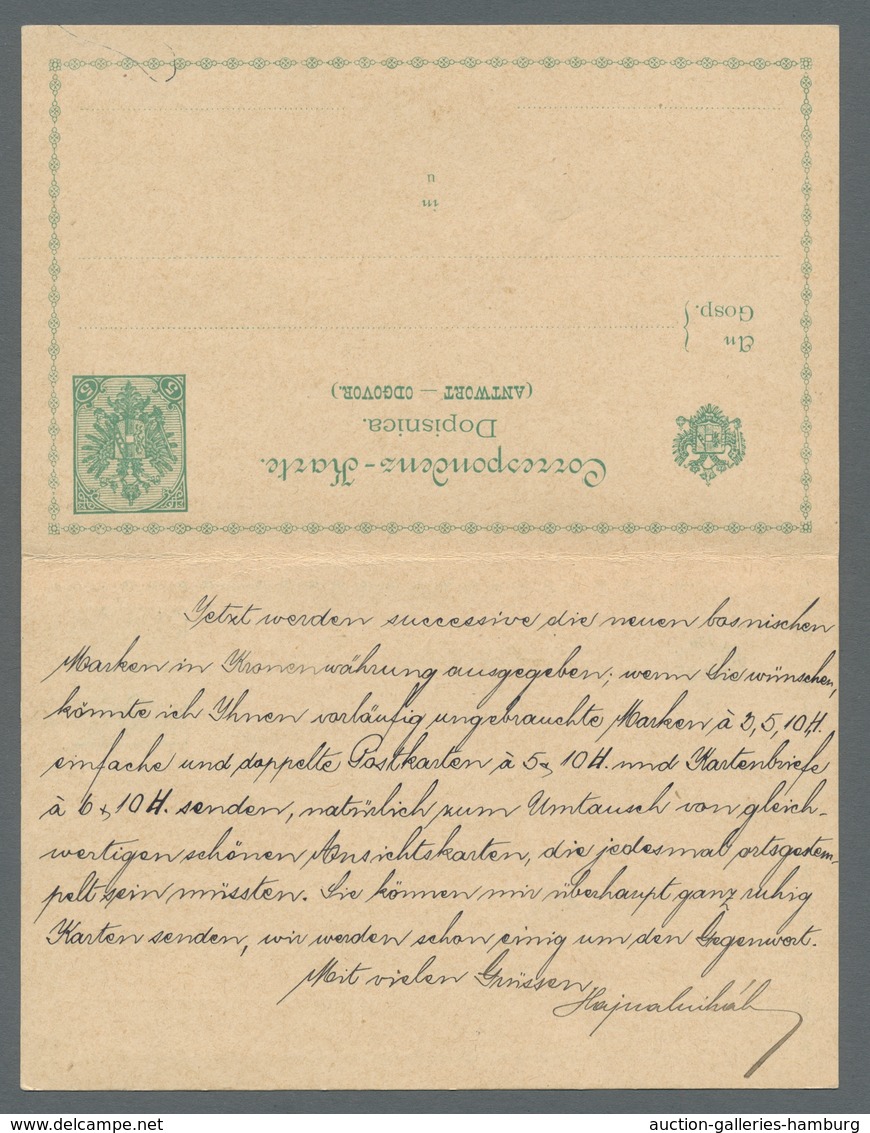 Correspondenz-Karte.
Dopisnica.
(ANTWORT — ODGOVOR.)
An
Gosp.
in
u
5 5
Jetzt werden successive die neuen bosnischen
Marken in Kronenwährung ausgegeben; wenn Sie wünschen,
könnte ich Ihnen vorläufig ungebrauchte Marken à 2, 5, 10 H.
einfache und doppelte Postkarten à 5 & 10 H. und Kartenbriefe
à 6 & 10 H. senden, natürlich zum Umtausch von gleich-
wertigen schönen Ansichtskarten, die jedesmal ortsgestem-
pelt sein müssten. Sie können mir überhaupt ganz ruhig
Karten senden, wir werden schon einig um den Gegenwort.
Mit vielen Grüssen
auction-galleries-hamburg